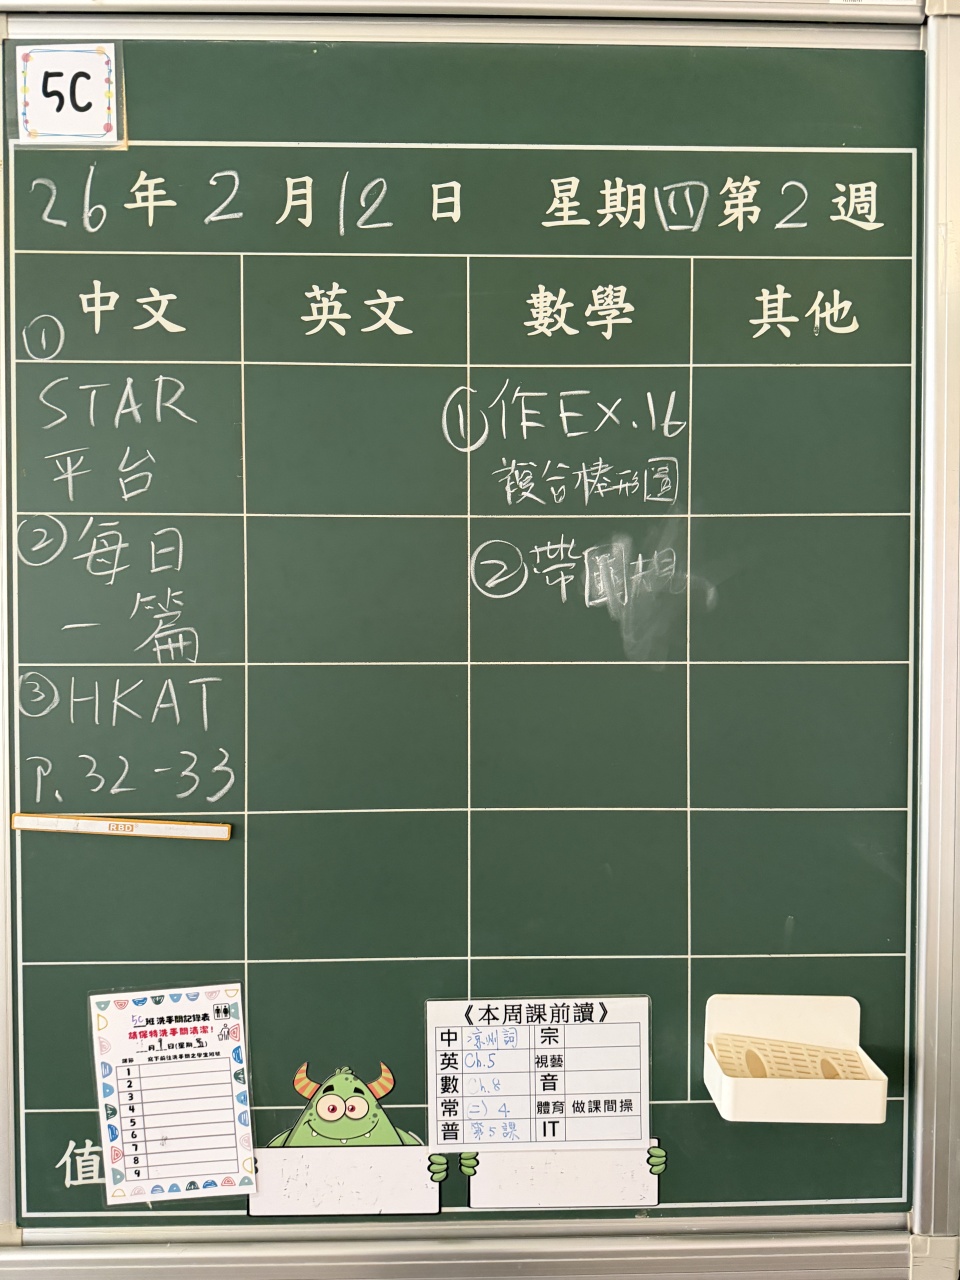 5C
26年2月12日 星期四第2週
中文 英文 數學 其他
①
STAR
平台
②每日
一篇
③HKAT
P.32-33
①作Ex.16
複合棒形圖
②帶圓規
RBD
5C班洗手間記錄表
請保持洗手間清潔!
月9日(星期五)
課節 寫下前往洗手間之學生班號
1
2
3
4
5
6
7
8
9
值
《本周課前讀》
中 涼州詞 宗
英 Ch.5 視藝
數 Ch.8 音
常 二)4 體育 做課間操
普 第5課 IT